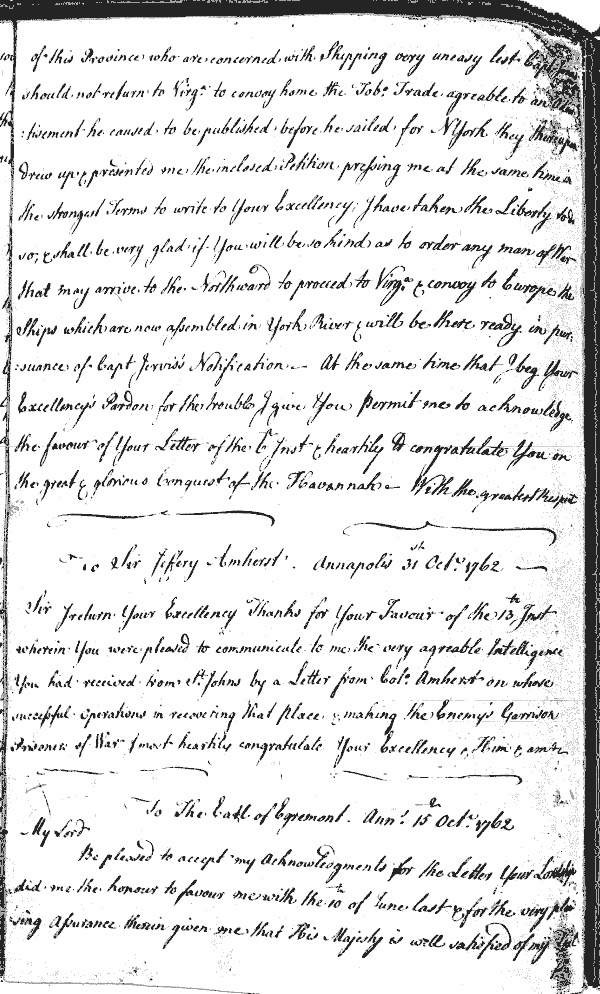 of this Province who are concerned with Shipping very uneasy lest Capt
should not return to Virga. to convoy home the Tobo. Trade agreable to an
:tisement he caused to be published before he sailed for NYork they thereupon
drew up & presented me the inclosed Petition pressing me at the same time in
the strongest Terms to write to Your Excellency; I have taken the Liberty to do
so; & shall be very glad if You will be so kind as to order any man of War
that may arrive to the Northward to proceed to Virga. & convoy to Europe the
Ships which are now assembled in York River & will be there ready in pur:
:suance of Capt Jervis's Notification — At the same time that I beg Your
Excellency's Pardon for the trouble I give You permit me to acknowledge
the favour of Your Letter of the Inst & heartily to congratulate You on
the great & glorious Conquest of the Havannah — With the greatest Respect
To Sir Jeffery Amherst. Annapolis 31st Octr. 1762 —
Sir I return Your Excellency Thanks for Your Favour of the 13th Inst
wherein You were pleased to communicate to me the very agreable Intelligence
You had received from St. Johns by a Letter from Colo. Amherst on whose
successful operations in recovering that place & making the Enemy's Garrison
Prisoners of War I most heartily congratulate Your Excellency & Him & am &c
To The Earl of Egremont. Anns. 15th Octr. 1762
My Lord
Be pleased to accept my Acknowledgments for the Letter Your Lordship
did me the honour to favour me with the 10th of June last & for the very plea
:sing Assurance therein given me that His Majesty is well satisfied of my